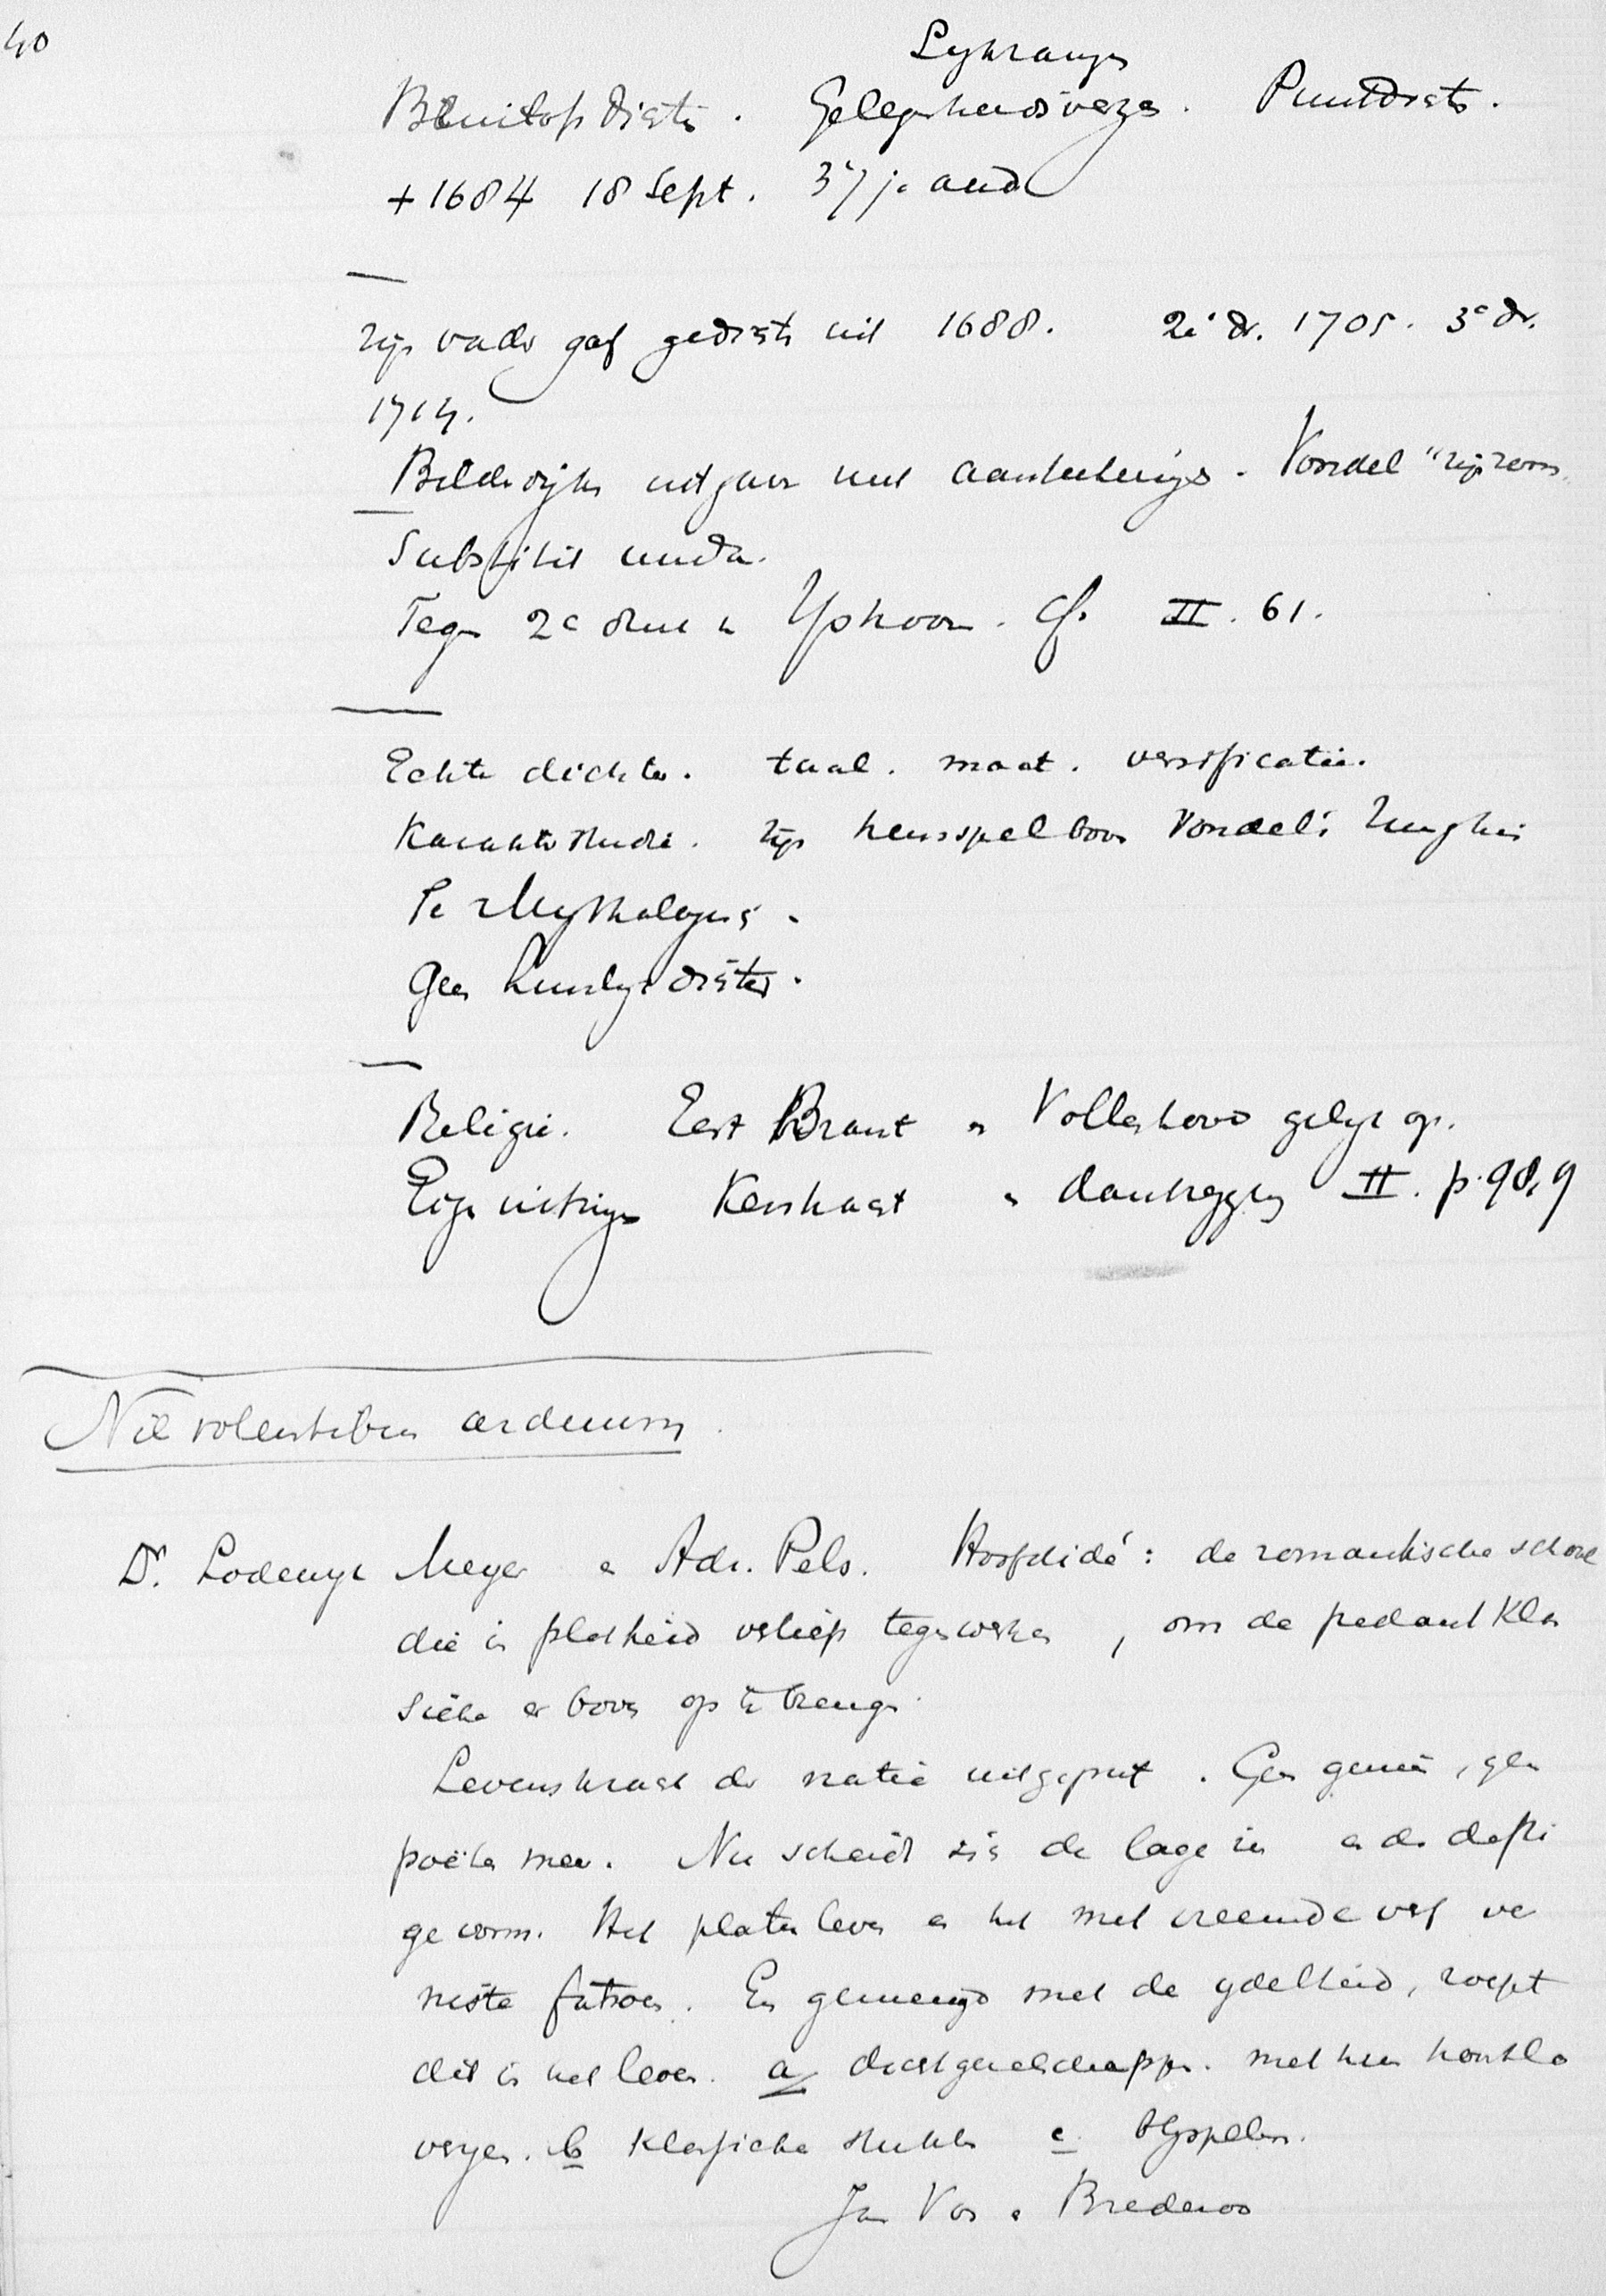 40
Lijkzangen
Bruiloftsdichten. Gelegenheidsverzen. Puntdichten.
+ 1684 18 Sept. 37 j. oud
zijn vader gaf gedichten uit 1688. 2e dr. 1705. 3e dr.
1714.
Bilderdijks uitgave met aanteekeningen. Vondel "zijn zoon
Substitit unda.
Tegen 2e en Yphoon. Cf. II. 61.
Echte dichter. taal. maat. versificatie.
Karakterstudie. zijn heusspel boven Vondel's Zunghin
Te Mythologisch.
Geen kundige dichter.
Religie. Eerst Brant en Vollenhove gelijk op.
Eigen richting Kersnacht en dankzegging II. p. 98,9
Nil volentibus arduum.
Dr. Lodewijk Meyer en Adr. Pels. Hoofdidé: de romantische school
die in platheid verliep tegenwerken, om de pedant Klas
sieke er boven op te brengen.
Levenskracht der natie uitgeput. Geen genie, geen
poëten meer. Nu scheidt zich de lage in en de defti
ge vorm. Het platte leven en het met vreemde verf ver
niste fatsoen. En gemengd met de ydelheid, roept
dit in het leven. a dichtgenootschappen. met hun kunstla
veryen. b klassieke stukken c. blyspelen.
Jan Vos en Brederoo